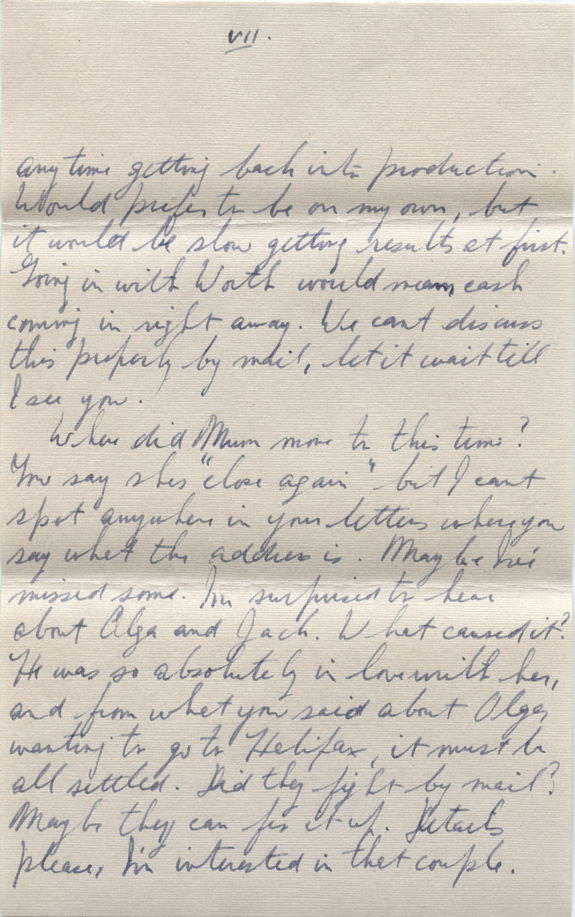 VII.
any time getting back into production.
Would prefer to be on my own, but
it would be slow getting results at first.
Going in with Worth would mean cash
coming in right away. We cant discuss
this properly by mail, let it wait till
I see you.
Where did Mum move to this time?
You say shes "close again" but I cant
spot anywhere in your letters where you
say what the address is. Maybe I've
missed some. I'm surprised to hear
about Olga and Jack. What caused it?
He was so absolutely in love with her,
and from what you said about Olga
wanting to go to Halifax, it must be
all settled. Did they fight by mail?
Maybe they can fix it up. Details
please, I'm interested in that couple.